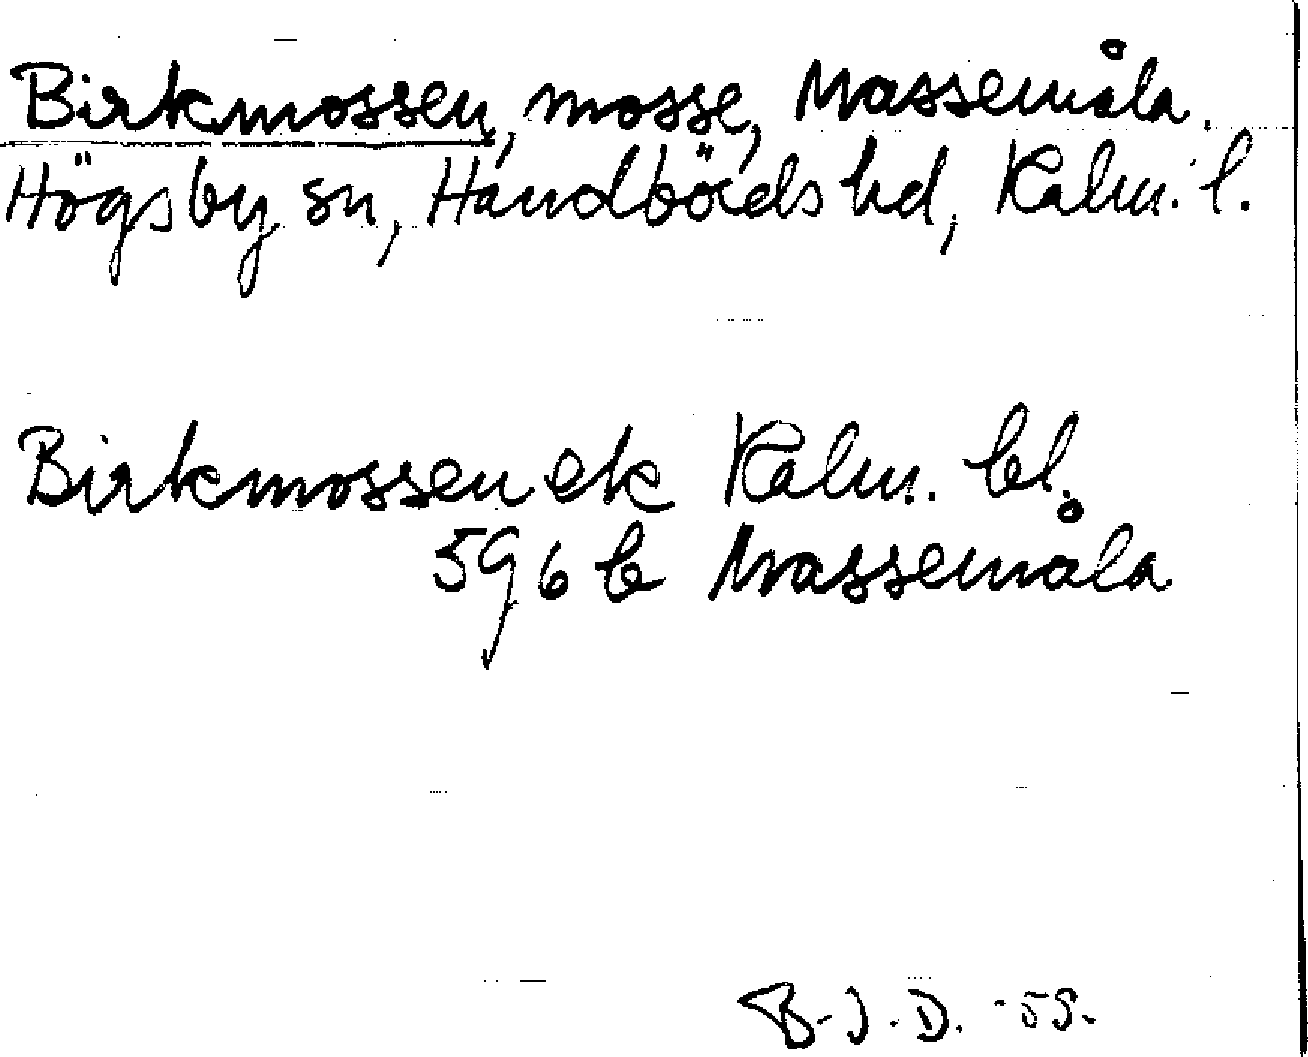 Birkmossen, mosse, Massemåla.
Högsby sn, Handbörds hd, Kalm. l.
Birkmossen ek Kalm. bl.
596 b Massemåla
B-J.D. -55.